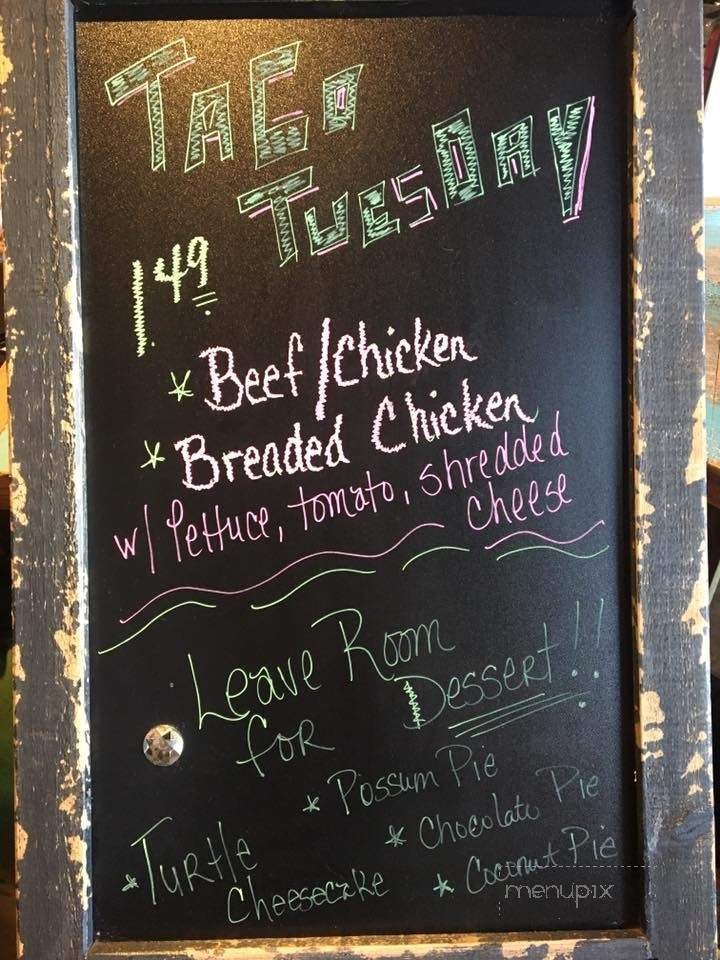 TACO
TUESDAY
1.49
* Beef/Chicken
* Breaded Chicken
w/ lettuce, tomato, shredded
cheese
Leave Room
for Dessert!!
* Possum Pie
* Chocolate Pie
* Turtle
Cheesecake
* Coconut Pie
menupix